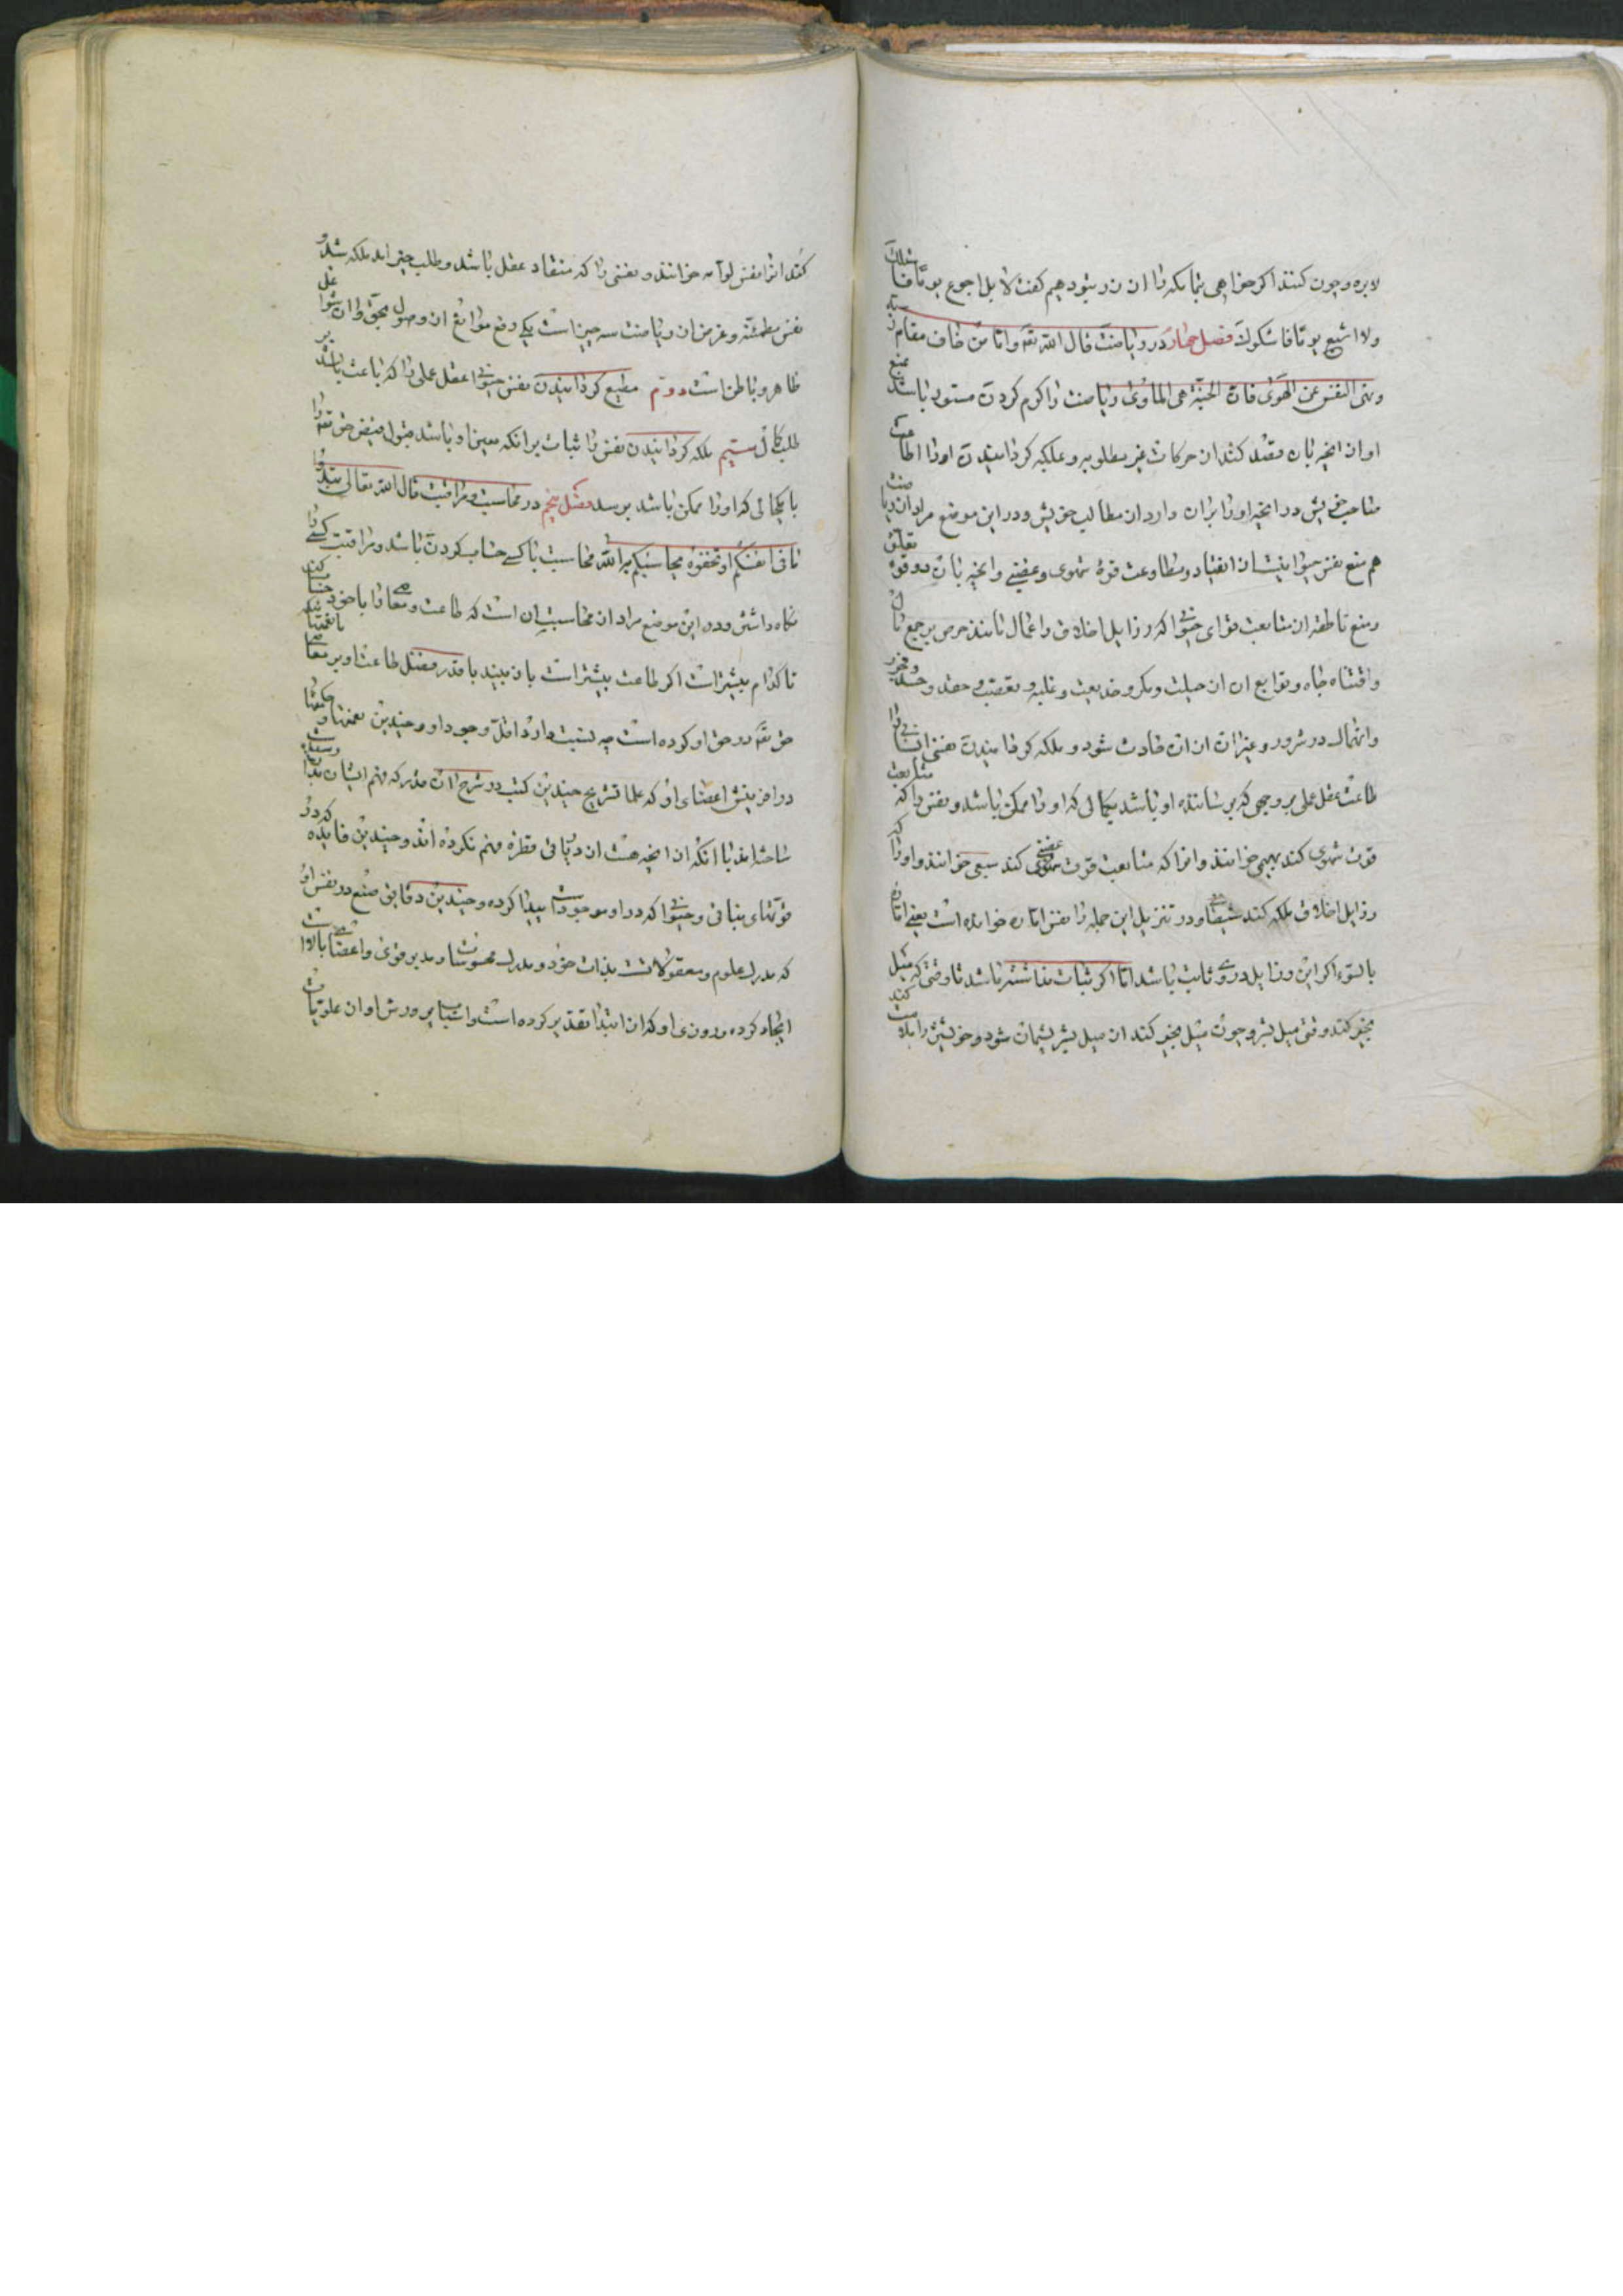 لابره وچون کنند اکر خواهی بتما مکه را ان زر بشود هیم کفت لا بل اجوع یوما فاسئلک
ولا اشبع یوما فاشکرک فصل چهارم در ریاضت قال الله تعه واما من خاف مقام ربه
ونهی النفس عن الهوی فان الجنة هی الماوی ریاضت رام کردن ستور باشد بمنع
او از انچه بان قصد کند از حرکات غیر مطلوبه و ملکه کردانیدن او را اطاعت
صاحب خویش در انچه او را بران دارد از مطالب خویش و در این موضع مراد از ریاضت
هم منع نفس حیوانیست از انقیاد و مطاوعت قوهٔ شهوی و غضبی و انچه بان دو قوه تعلق
ومنع ناطقه از متابعت قوای حیوانی که رزایل اخلاق و اعمال مانند حرص بر جمع مال
واقتناء جاه و توابع ان از حیلت و مکر و خدیعت و غلبه و تعصب و حقد و حسد و فجور
وانهماک در شرور و غیر ان از ان حادث شود و ملکه کردانیدن نفس انسانی را
طاعت عقل عملی بر وجهی که برساننده او باشد بکمالی که او را ممکن باشد و نفس را که متابعت
قوت شهوی کند بهیمی خوانند و انرا که متابعت قوت غضبی کند سبعی خوانند و او را که
رزایل اخلاق ملکه کند شیطانی و در تنزیل این جمله را نفس اماره خوانده است یعنی اماره
بالسوء اکر این رزایل دروی ثابت باشد اما اکر ثبات نداشته باشد تا وقتی که میل
بخیر کند وقتی میل بشر و چون میل بخیر کند از میل بشر پشیمان شود و خویشتن را ملامت کند
کند انرا نفس لوامه خوانند و نفسی را که منقاد عقل باشد و طلب خیر اید ملکه شد و
نفس مطمئنه و غرض از ریاضت سه چیز است یکی رفع موانع از وصول بحق وان شواغل
ظاهر و باطن است دوم مطیع کردانیدن نفس حیوانی عقل عملی را که باعث باشد بر
طلب کمال سیم ملکه کردانیدن نفس را ثبات بر انکه معین او باشد قبول فیض حق تعه را
تا بکمالی که او را ممکن باشد برسد فصل پنجم در محاسبت و مراقبت قال الله تعالی ان تبدوا
ما فی انفسکم او تخفوه یحاسبکم به الله محاسبت با کسی حساب کردن باشد و مراقبت کسی را
نکاه داشتن و در این موضع مراد از محاسبت ان است که طاعت و معاصی را با خود حساب کند
تا کدام بیشتر است اکر طاعت بیشتر است باز بیند با قدر فضل طاعت او بر معاصی
حق تعه در حق او کرده است چه نسبت دارد اول وجود او و چندین نعمتها و حکمتها
در افرینش اعضای او که علما تشریح چندین کتب در شرح ان قدر که فهم ایشان بدان رسیده
ساخته اند با انکه از انچه هست از دریائی قطره فهم نکرده اند و چندین فایده که در
قوتهای نباتی و حیوانی که در او موجودست پیدا کرده و چندین دقایق صنع در نفس او
که مدرک علوم و معقولات است بذات خود و مدرک محسوسات و مدبر قوی و اعضا
ایجاد کرده و روزی او که از ابتدا تقدیر کرده است و اسباب پرورش او از علویات